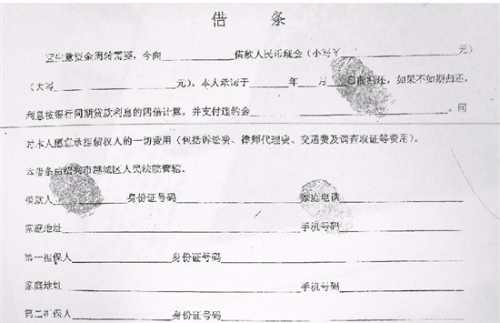 借 条
因生意资金周转需要，今向____________借款人民币现金（小写￥____________元）
（大写____________元），本人承诺于______年____月____日前归还，如果不如期归还，
利息按银行同期贷款利息的四倍计算，并支付违约金____________，同
时本人愿意承担债权人的一切费用（包括诉讼费、律师代理费、交通费及调查取证等费用）。
本借条由绍兴市越城区人民法院管辖、
借款人____________身份证号码____________家庭电话____________
家庭地址____________手机号码____________
第一担保人____________身份证号码____________
家庭地址____________手机号码____________
第二担保人____________身份证号码____________